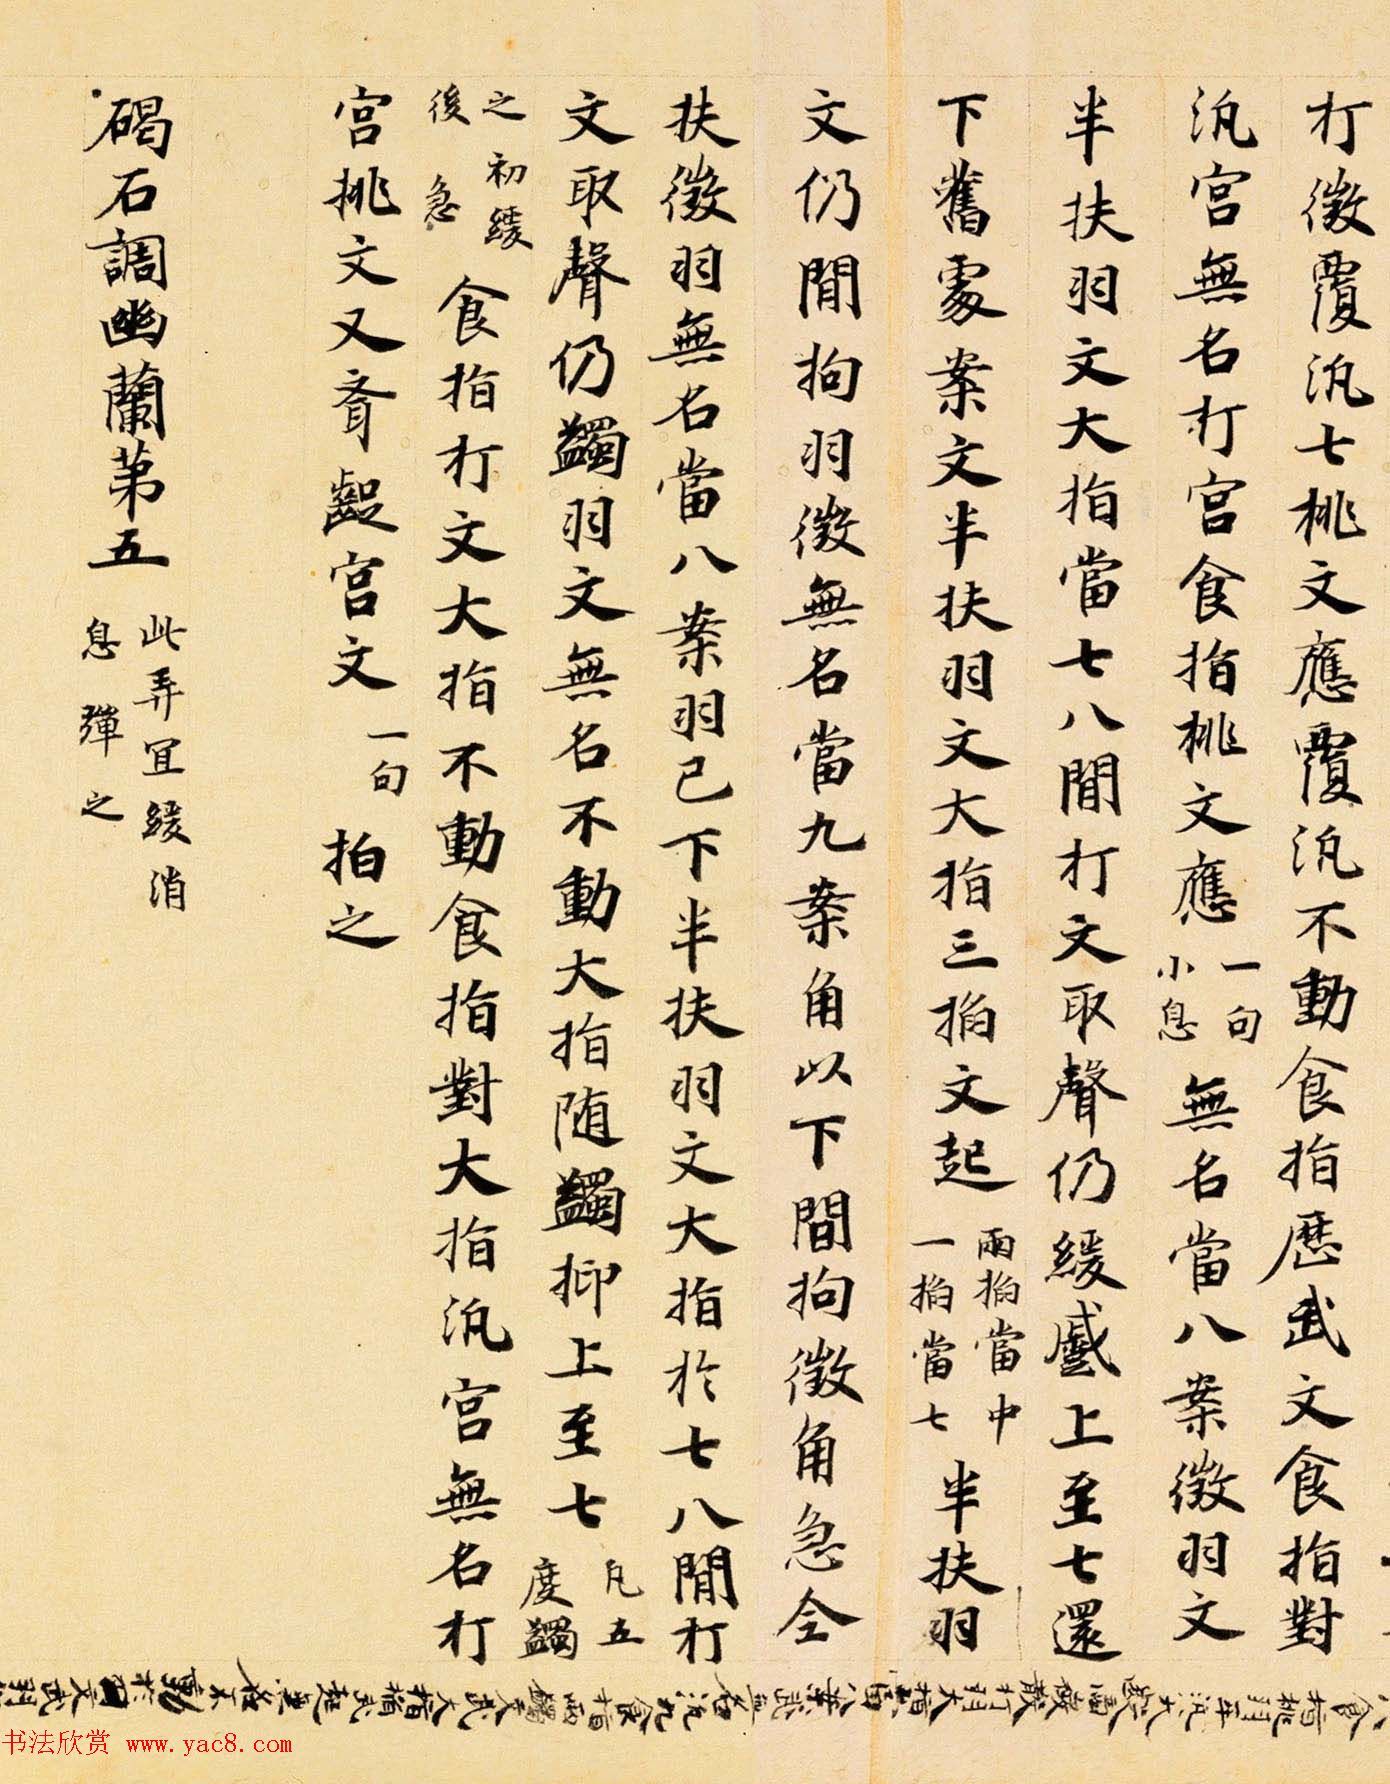 打徵覆汎七挑文應覆汎不動食指歷武文食指對
汎宮無名打宮食指挑文應一句小息無名當八案徵羽文
半扶羽文大指當七八間打文取聲仍緩蹙上至七還
下舊處案文半扶羽文大指三掐文起兩掐當中一掐當七半扶羽
文仍間拘羽徵無名當九案角以下間拘徵角急全
扶徵羽無名當八案羽已下半扶羽文大指於七八間打
文取聲仍蠲羽文無名不動大指随蠲抑上至七凡五度蠲
之初緩後急食指打文大指不動食指對大指汎宮無名打
宮挑文又齊齪宮文一句拍之
碣石調幽蘭第五此弄宜緩消息彈之
书法欣赏 www.yac8.com